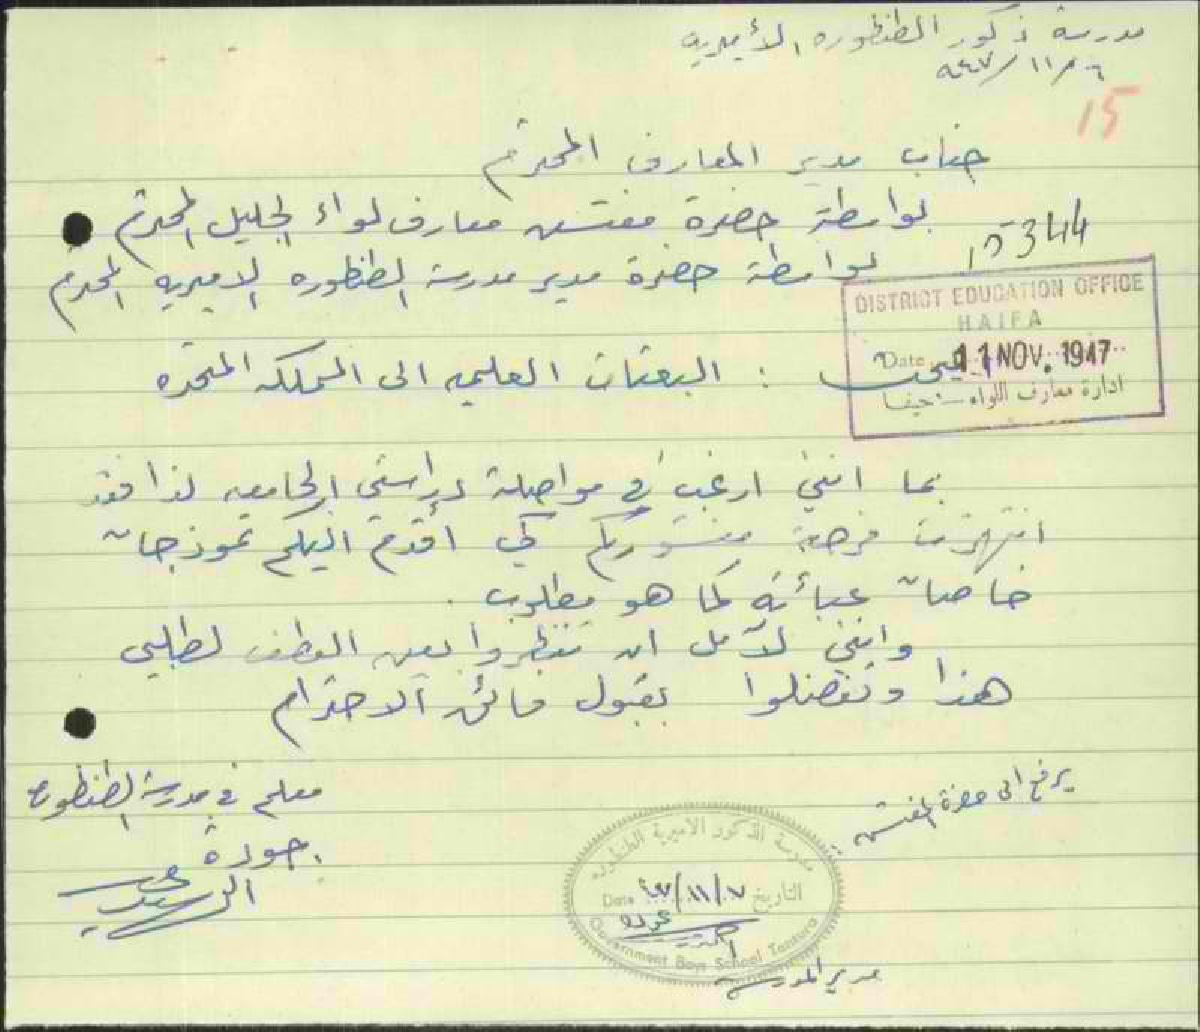 مدرسة ذكور الطنطوره الأميريه
٦/١١/٩٤٧
15
جناب مدير المعارف المحترم
بواسطة حضرة مفتش معارف لواء الجليل المحترم
15344
بواسطة حضرة مدير مدرسة الطنطوره الاميريه المحترم
DISTRICT EDUCATION OFFICE
HAIFA
Date 11 NOV. 1947
ادارة معارف اللواء - حيفا
المبحث : البعثات العلميه الى المملكه المتحده
بما انني ارغب في مواصلة دراستي الجامعيه لذا فقد
انتهزت فرصة منشوركم كي أقدم اليكم نموذجان
خاصان عبأته كما هو مطلوب .
وانني لآمل ان تنظروا بعين العطف لطلبي
هذا وتفضلوا بقبول فائق الاحترام
معلم في مدرسة الطنطوره
جودة
يرفع الى حضرة المفتش
مدرسة الذكور الاميرية الطنطوره
التاريخ ٧/١١/٤٧ Date
Government Boys School Tantura
مدير المدرسه